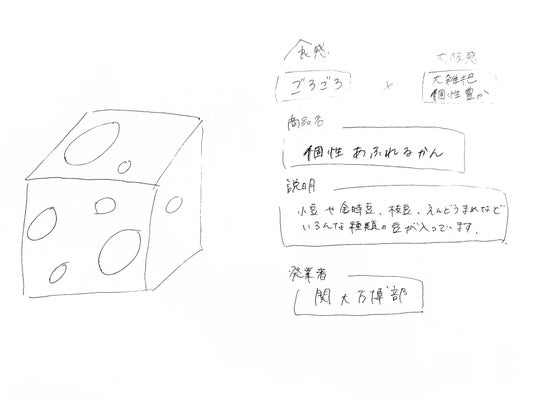 食感
ごろごろ
×
大阪感
大雑把
個性豊か
商品名
個性あふれるかん
説明
小豆や金時豆、枝豆、えんどうまれなど
いろんな種類の豆が入っています。
発業者
関大万博部